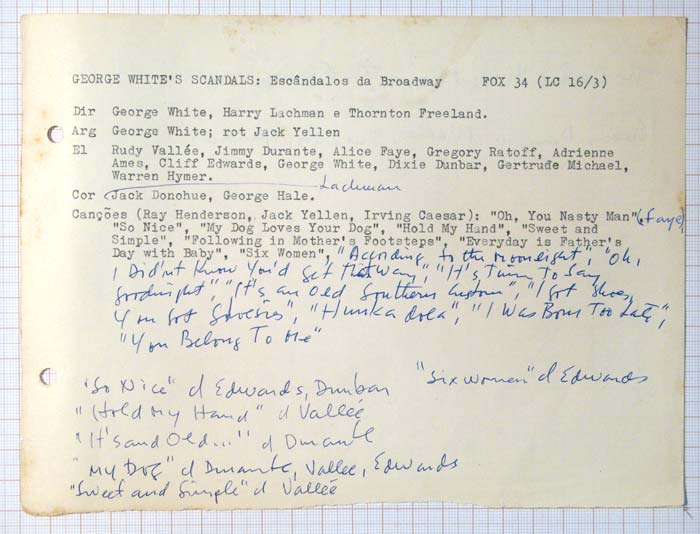 GEORGE WHITE'S SCANDALS: Escândalos da Broadway FOX 34 (LC 16/3)
Dir George White, Harry Lachman e Thornton Freeland.
Arg George White; rot Jack Yellen
El Rudy Vallée, Jimmy Durante, Alice Faye, Gregory Ratoff, Adrienne
Ames, Cliff Edwards, George White, Dixie Dunbar, Gertrude Michael,
Warren Hymer.
Lachman
Cor Jack Donohue, George Hale.
Canções (Ray Henderson, Jack Yellen, Irving Caesar): "Oh, You Nasty Man" (Faye),
"So Nice", "My Dog Loves Your Dog", "Hold My Hand", "Sweet and
Simple", "Following in Mother's Footsteps", "Everyday is Father's
Day with Baby", "Six Women", "According to the moonlight", "Oh,
I Didn't Know You'd Get That Way", "It's Time To Say
Goodnight", "It's an Old Southern Custom", "I Got Shoes,
You Got Shoesies", "Hunkadola", "I Was Born Too Late",
"You Belong To Me"
"So Nice" d Edwards, Dunbar "Six Women" d Edwards
"Hold My Hand" d Vallée
"It's and Old..." d Durante
"My Dog" d Durante, Vallee, Edwards
"Sweet and Simple" d Vallée